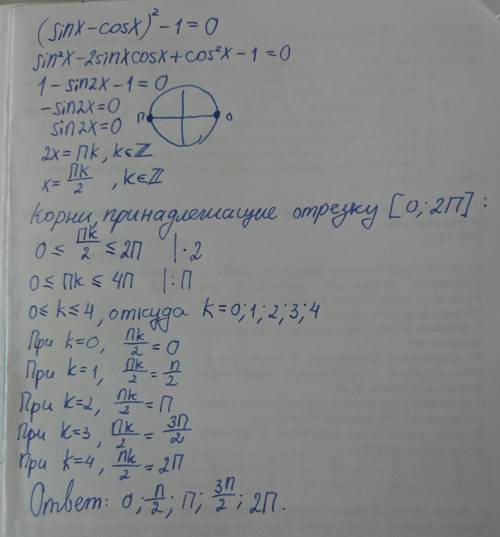 (sinx-cosx)²-1=0
sin²x-2sinxcosx+cos²x-1=0
1-sin2x-1=0
-sin2x=0
sin2x=0
П 0
2x=Пk, k∈ℤ
x=Пk/2, k∈ℤ
Корни, принадлежащие отрезку [0; 2П]:
0≤Пk/2≤2П |·2
0≤Пk≤4П |:П
0≤k≤4, откуда k=0;1;2;3;4
При k=0, Пk/2=0
При k=1, Пk/2=П/2
При k=2, Пk/2=П
При k=3, Пk/2=3П/2
При k=4, Пk/2=2П
Ответ: 0; П/2; П; 3П/2; 2П.